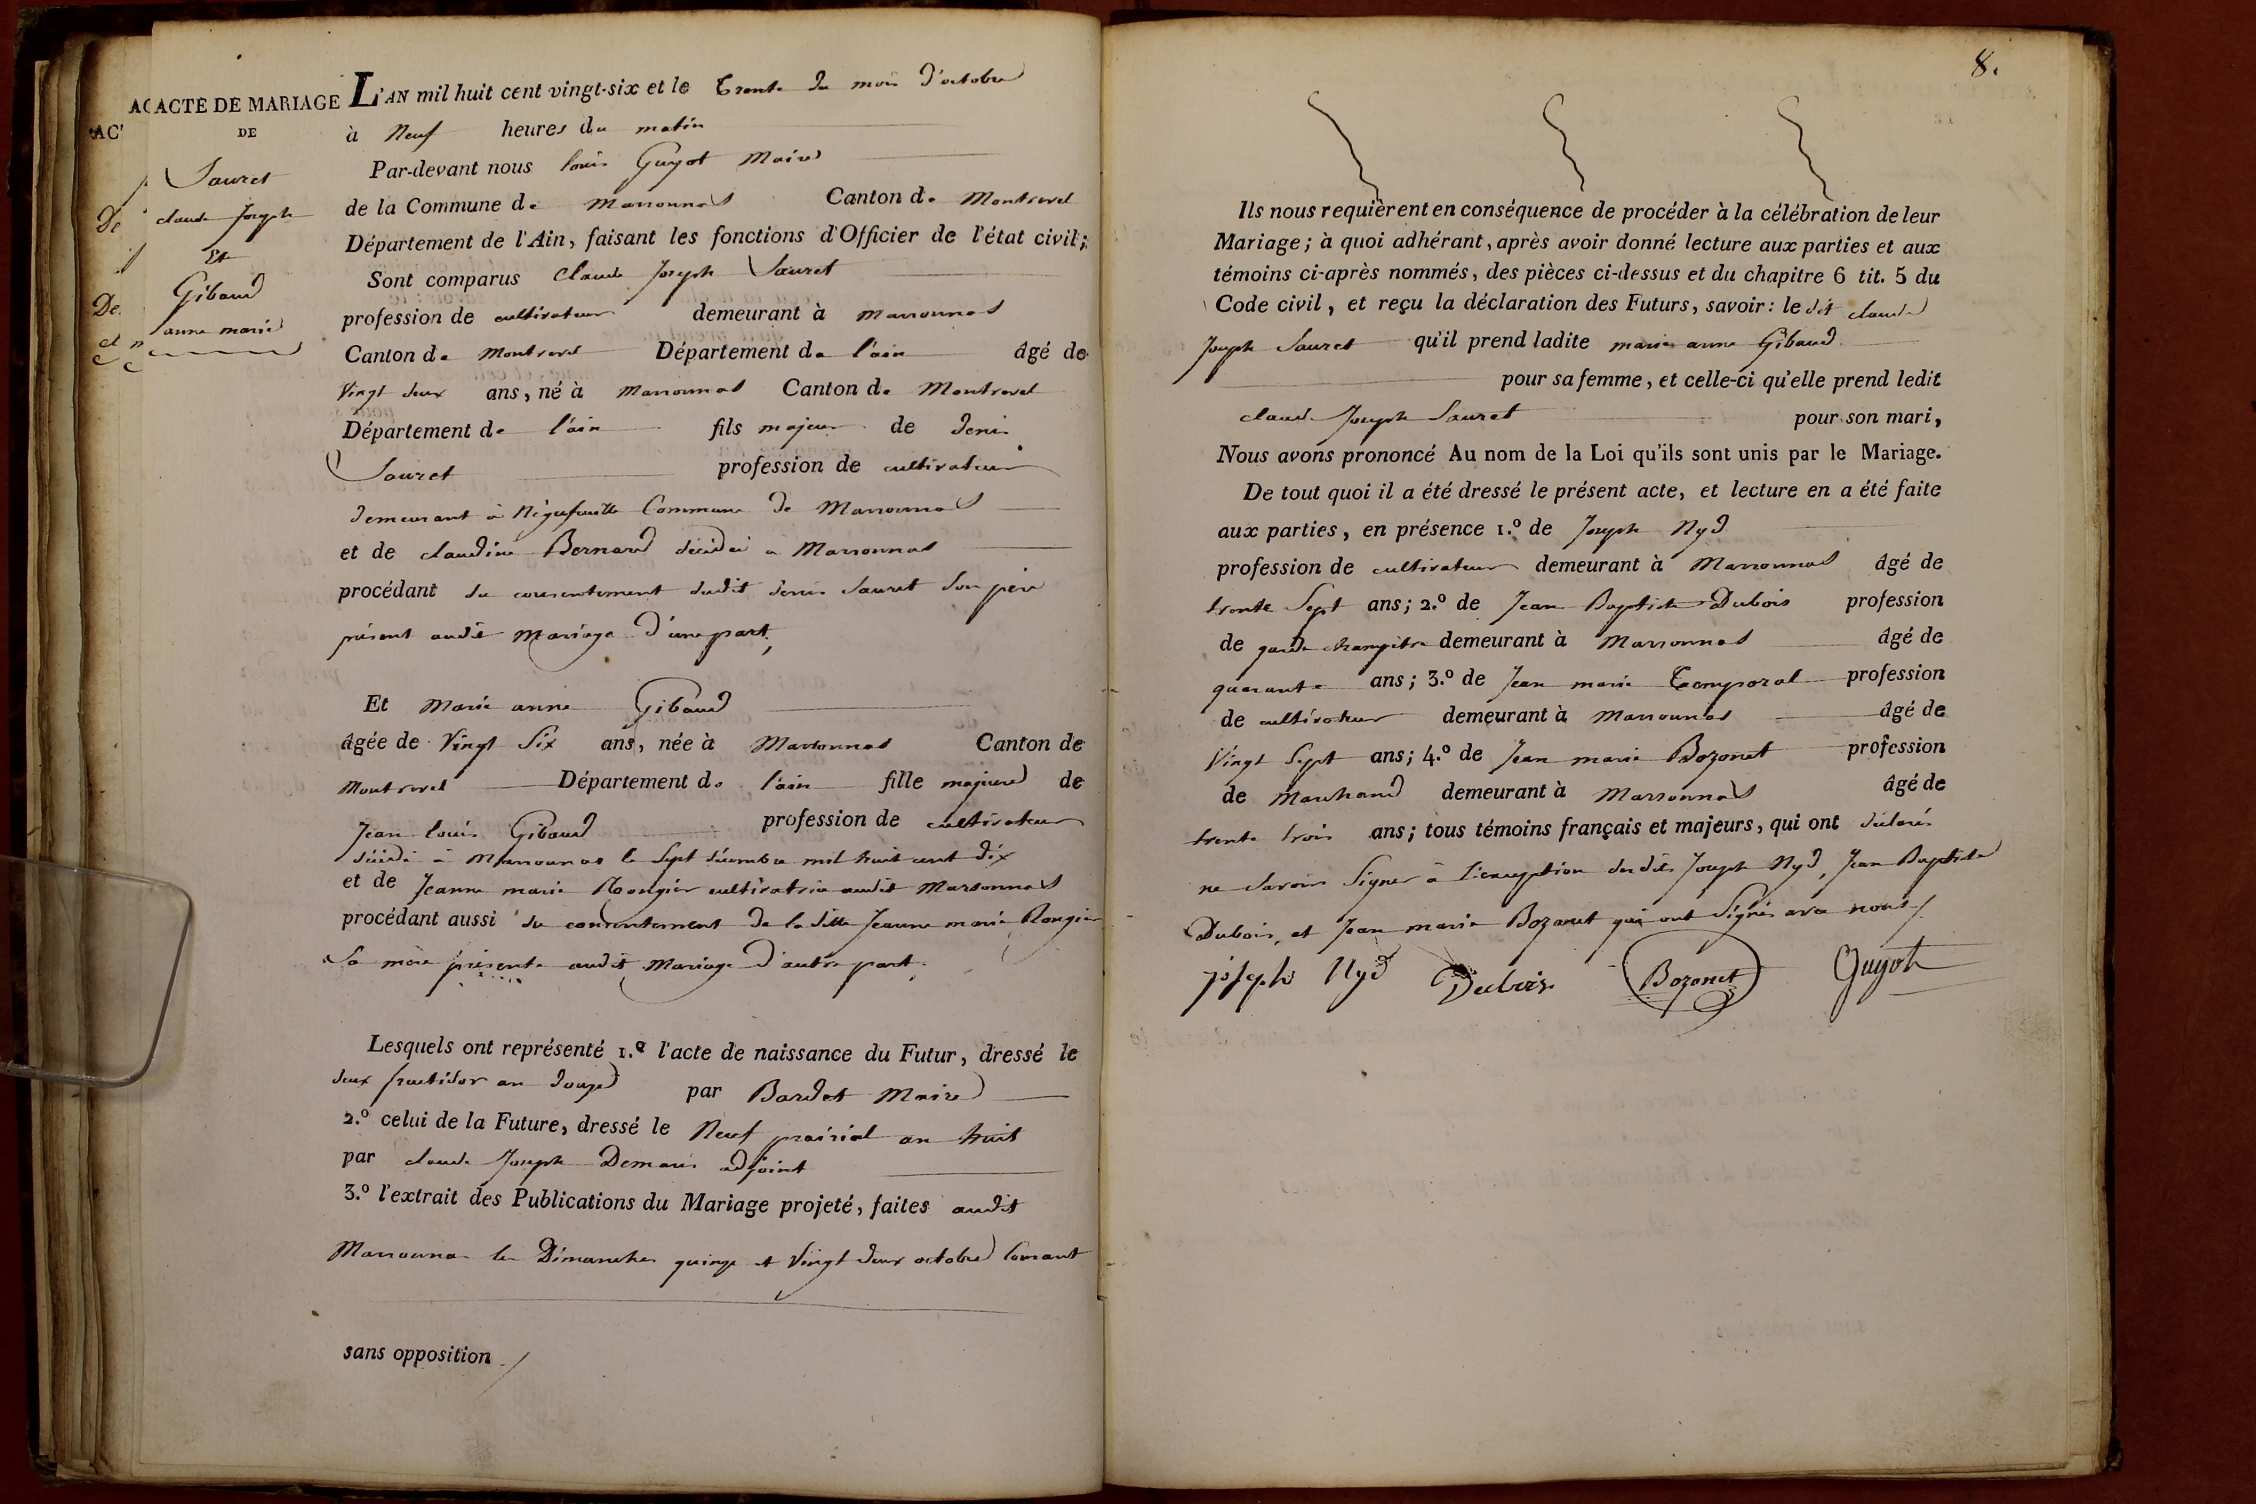 8.
ACTE DE MARIAGE
DE
Sauret
claude Joseph
Et
Gibaud
anne marie
L'AN mil huit cent vingt-six et le Trente du mois d'octobre
à Neuf heures du matin
Par-devant nous louis Guyot Maire
de la Commune de Marsonnas Canton de Montrevel
Département de l'Ain, faisant les fonctions d'Officier de l'état civil;
Sont comparus Claude Joseph Sauret
profession de cultivateur demeurant à Marsonnas
Canton de Montrevel Département de l'ain âgé de
Vingt deux ans, né à Marsonnas Canton de Montrevel
Département de l'ain fils majeur de denis
Sauret profession de cultivateur
demeurant à Commune de Marsonnas
et de claudine Bernard décédée à Marsonnas
procédant du consentement dudit denis Sauret son père
présent audit mariage d'une part,
Et Marie anne Gibaud
âgée de Vingt Six ans, née à Marsonnas Canton de
Montrevel Département de l'ain fille majeure de
Jean louis Gibaud profession de cultivateur
décédé à Marsonnas le Sept décembre mil huit cent dix
et de Jeanne marie Rongier cultivatrice audit Marsonnas
procédant aussi du consentement de la ditte Jeanne marie Rongier
Sa mère présente audit Mariage d'autre part.
Lesquels ont représenté 1.º l'acte de naissance du Futur, dressé le
deux fructidor an douze par Bardet Maire
2.º celui de la Future, dressé le Neuf prairial an huit
par claude Joseph Demaris adjoint
3.º l'extrait des Publications du Mariage projeté, faites audit
Marsonnas les Dimanches quinze et Vingt deux octobre Courant
sans opposition /
Ils nous requièrent en conséquence de procéder à la célébration de leur
Mariage; à quoi adhérant, après avoir donné lecture aux parties et aux
témoins ci-après nommés, des pièces ci-dessus et du chapitre 6 tit. 5 du
Code civil, et reçu la déclaration des Futurs, savoir: le dit claude
Joseph Sauret qu'il prend ladite marie anne Gibaud
pour sa femme, et celle-ci qu'elle prend ledit
claude Joseph Sauret pour son mari,
Nous avons prononcé Au nom de la Loi qu'ils sont unis par le Mariage.
De tout quoi il a été dressé le présent acte, et lecture en a été faite
aux parties, en présence 1.º de Joseph Nyd
profession de cultivateur demeurant à Marsonnas âgé de
trente Sept ans; 2.º de Jean Baptiste Dubois profession
de garde champêtre demeurant à Marsonnas âgé de
quarante ans; 3.º de Jean marie Temporal profession
de cultivateur demeurant à Marsonnas âgé de
Vingt Sept ans; 4.º de Jean marie Bozonet profession
de Marchand demeurant à Marsonnas âgé de
trente trois ans; tous témoins français et majeurs, qui ont déclaré
ne Savoir Signer à l'exception desdits Joseph Nyd, Jean Baptiste
Dubois, et Jean marie Bozonet qui ont Signés avec nous /.
joseph Nyd Dubois Bozonet Guyot